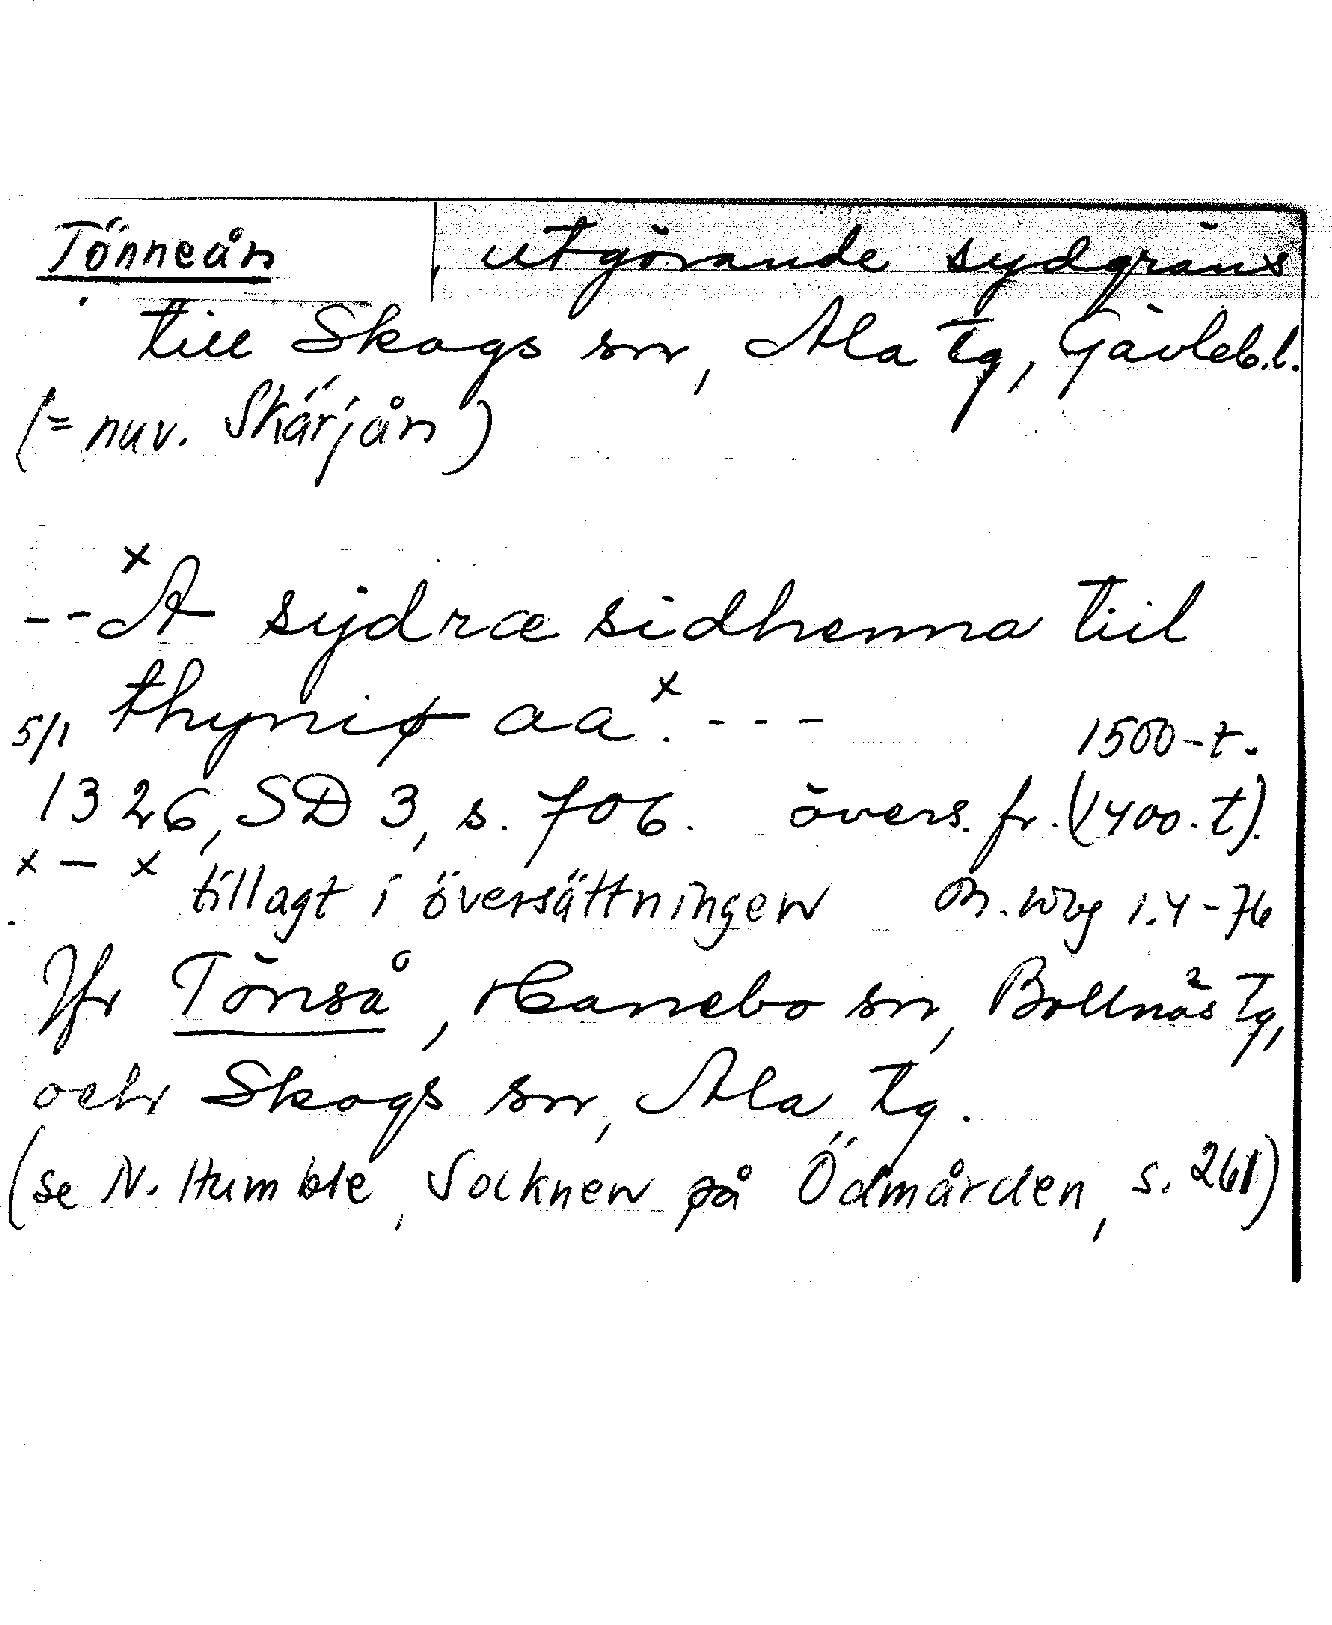 Tönneån, utgörande sydgräns
till Skogs sn, Ala tg, Gävleb.l.
(= nuv. Skärjån)
--ˣA sydræ sidhenna tiil
thyniø aaˣ. ---
5/1 1500-t.
1326, SD 3, s. 706. övers. fr. (1400-t).
x — x tillagt i översättningen 1.4-76
Jfr Tönså, Hanebo sn, Bollnäs tg,
och Skogs sn, Ala tg.
(se N. Humble, Socknen på Ödmården, s. 261)